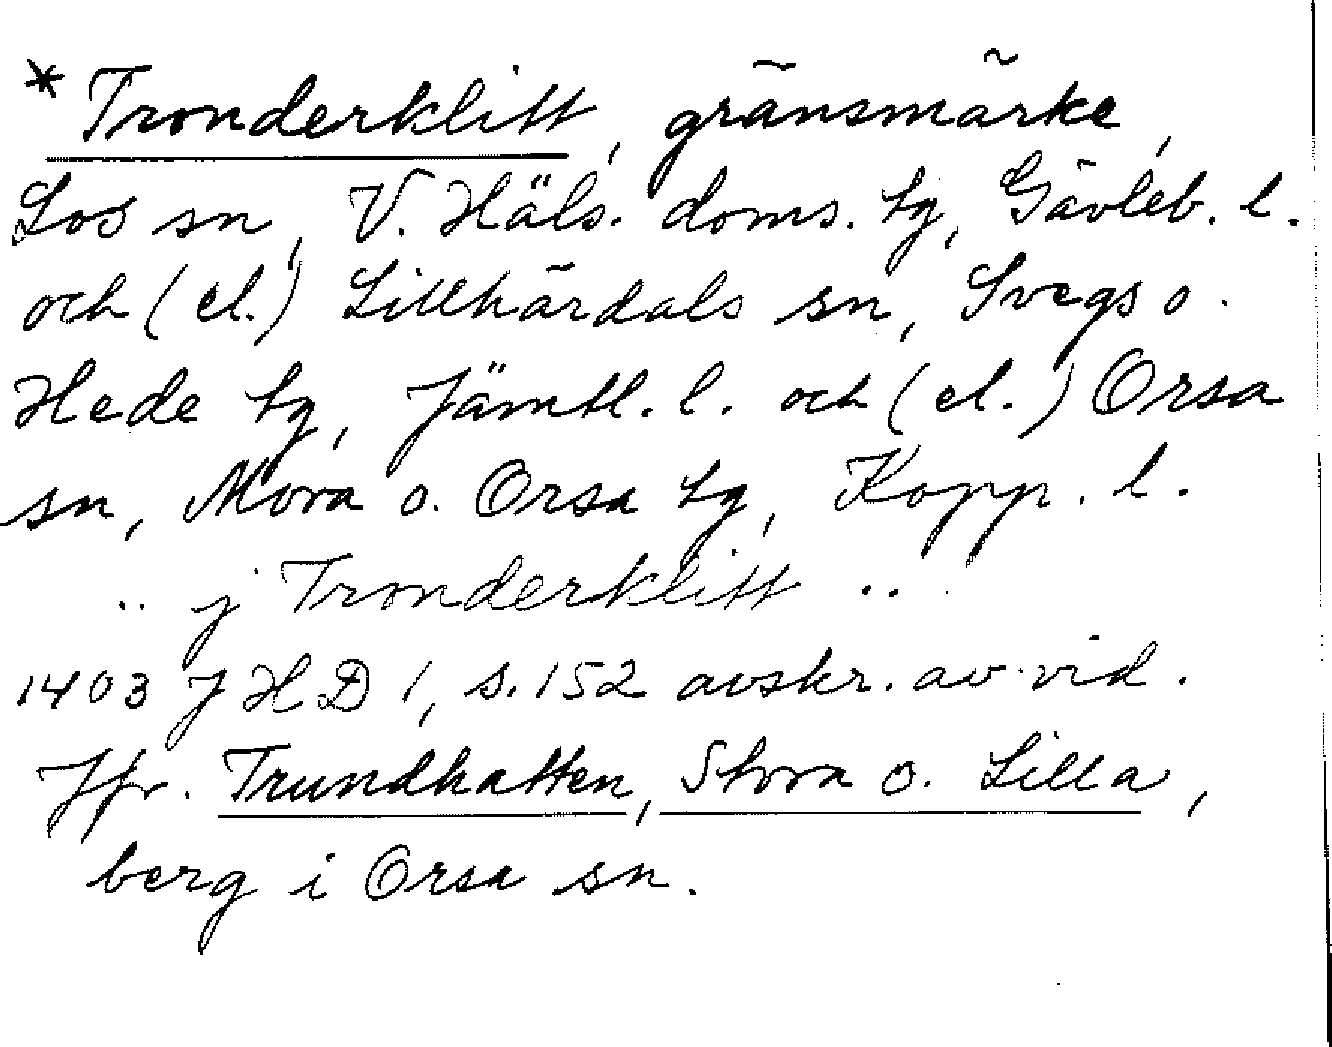 * Tronderklitt, gränsmärke,
Los sn, V. Häls. doms. tg, Gävleb. l.
och (el.) Lillhärdals sn, Svegs o.
Hede tg, Jämtl. l. och (el.) Orsa
sn, Mora o. Orsa tg, Kopp. l.
.. j Tronderklitt ..
1403 JHD 1, s. 152 avskr. av vid.
Jfr. Trundhatten, Stora o. Lilla,
berg i Orsa sn.